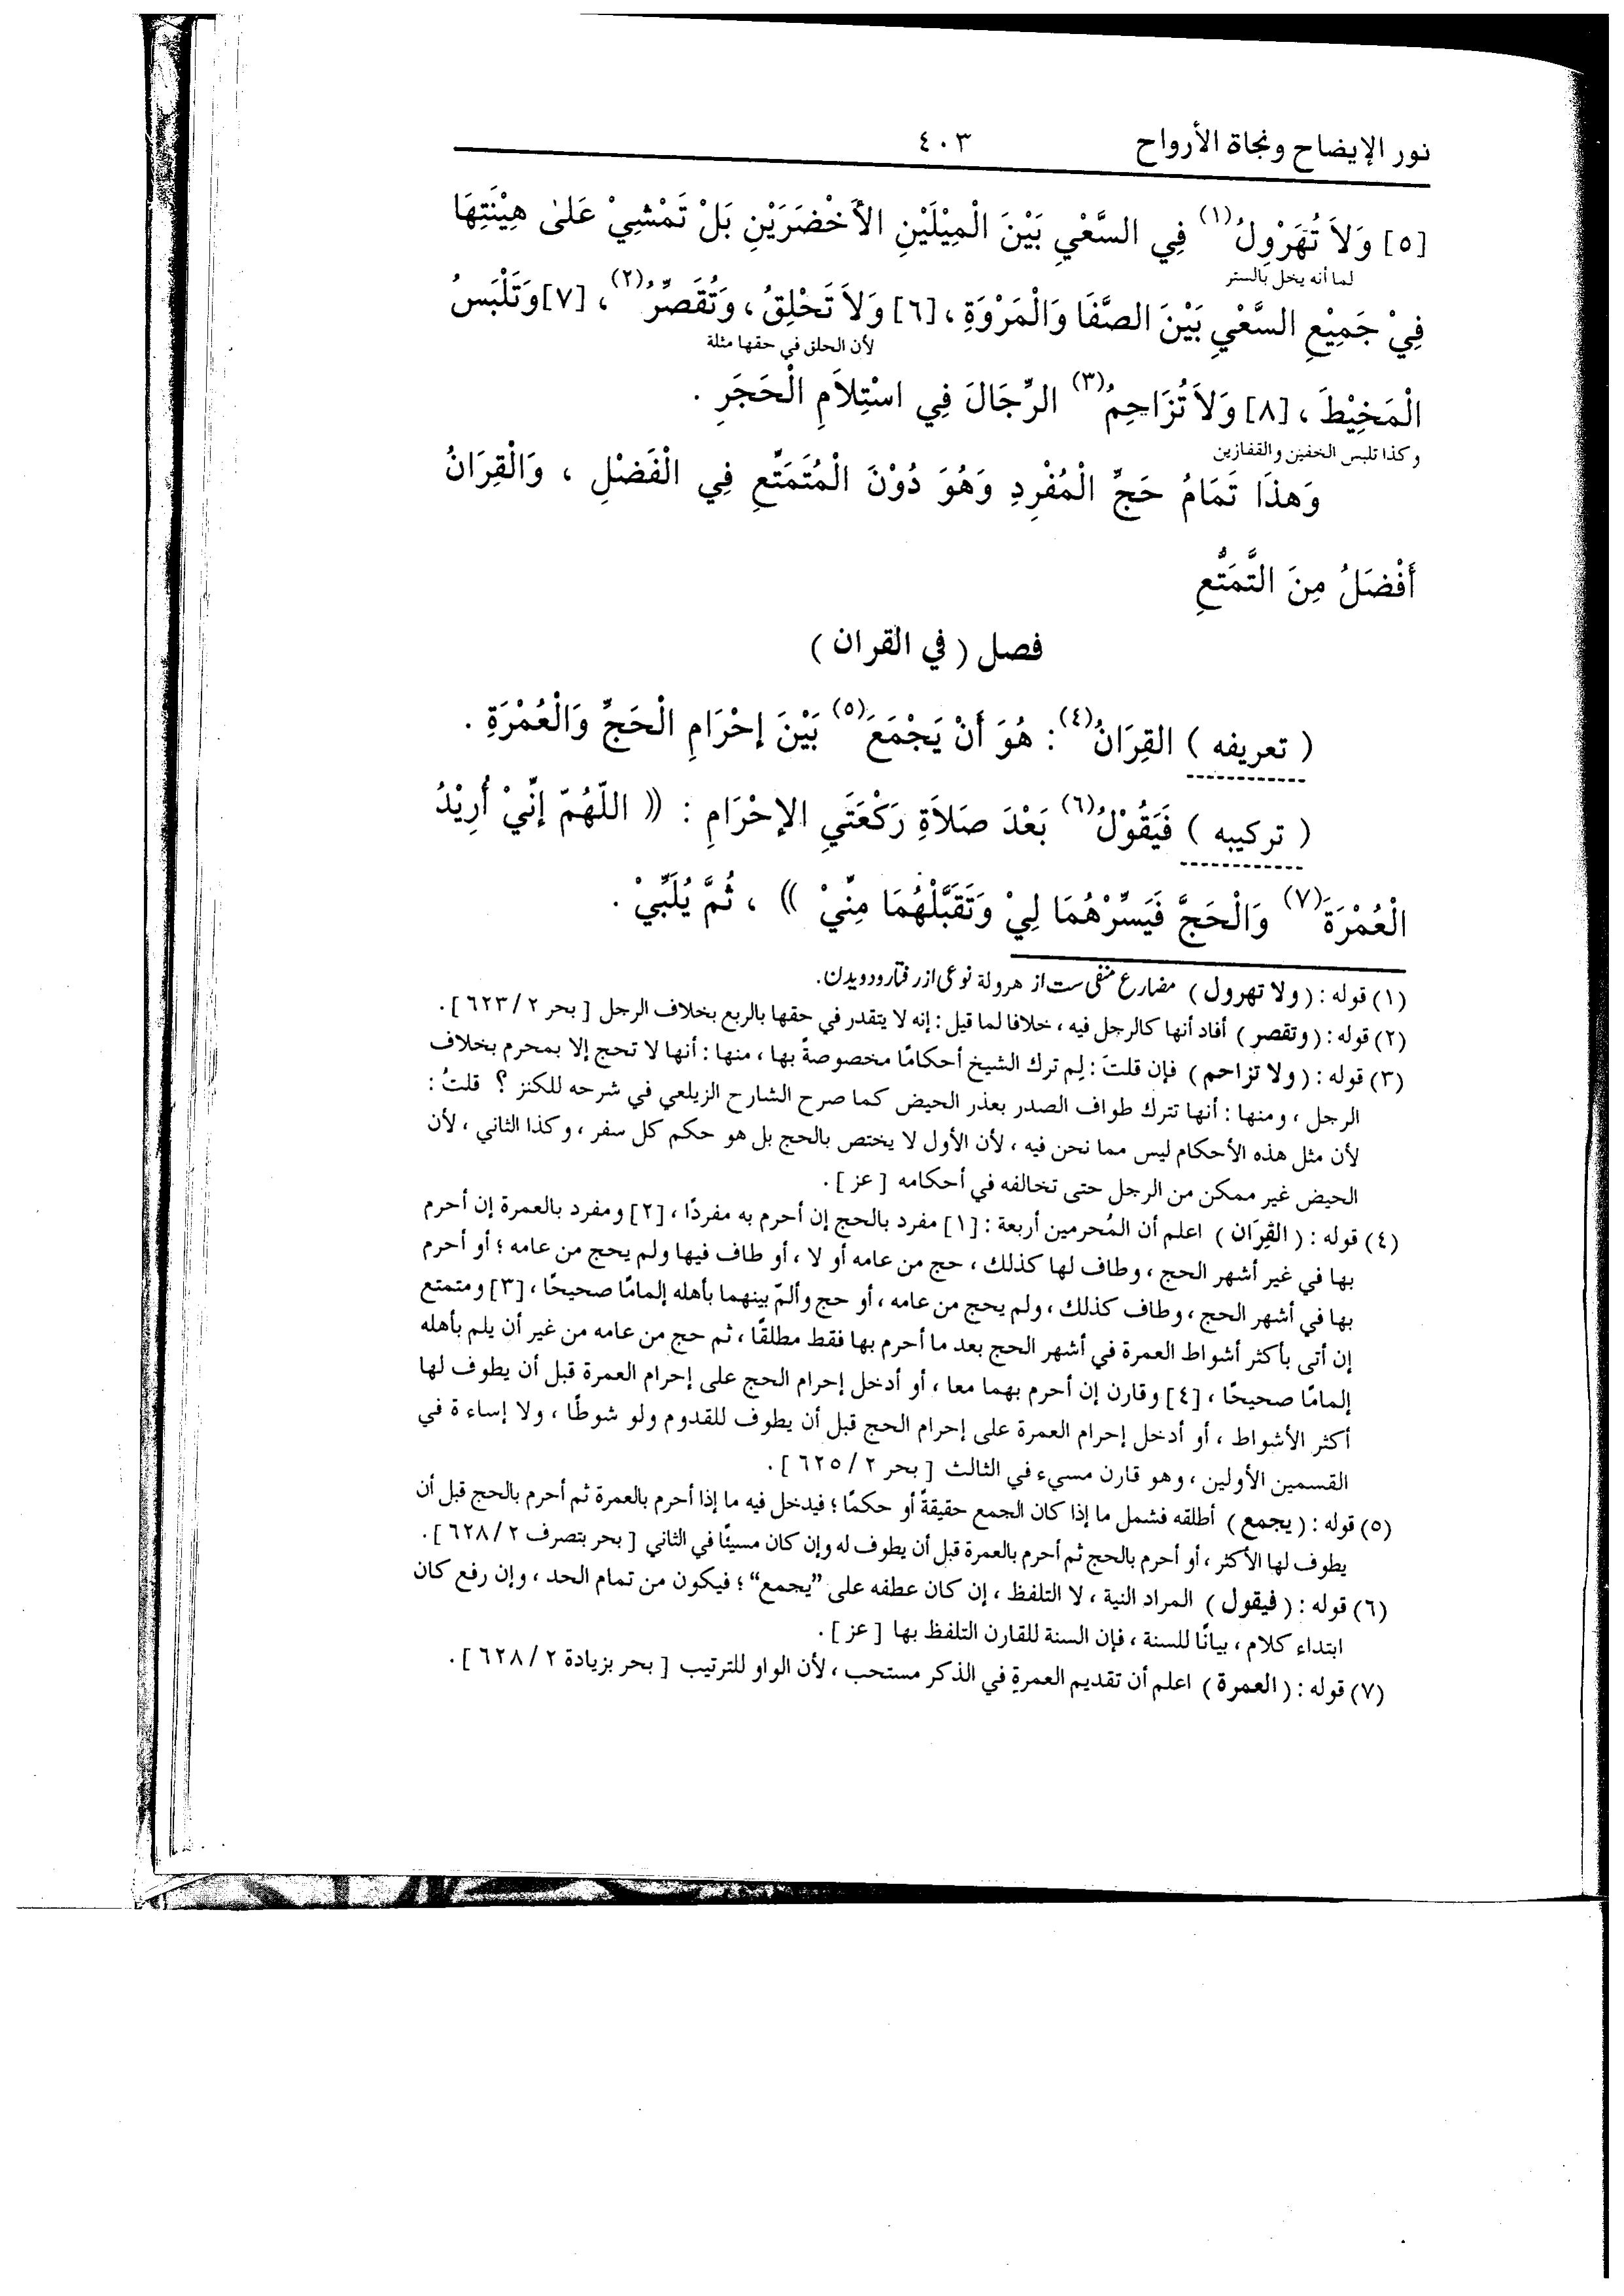 نور الإيضاح ونجاة الأرواح ٤٠٣
[٥] وَلاَ تُهَرْوِلُ(١) فِي السَّعْيِ بَيْنَ الْمِيْلَيْنِ الأَخْضَرَيْنِ بَلْ تَمْشِيْ عَلىٰ هِيْنَتِهَا
لما أنه يخل بالستر
فِيْ جَمِيْعِ السَّعْيِ بَيْنَ الصَّفَا وَالْمَرْوَةِ ، [٦] وَلاَ تَحْلِقُ ، وَتُقَصِّرُ(٢) ، [٧] وَتَلْبَسُ
لأن الحلق في حقها مثلة
الْمَخِيْطَ ، [٨] وَلاَ تُزَاحِمُ(٣) الرِّجَالَ فِي اسْتِلاَمِ الْحَجَرِ .
وكذا تلبس الخفين والقفازين
وَهذَا تَمَامُ حَجِّ الْمُفْرِدِ وَهُوَ دُوْنَ الْمُتَمَتِّعِ فِي الْفَضْلِ ، وَالْقِرَانُ
أَفْضَلُ مِنَ التَّمَتُّعِ
فصل ( في القران )
( تعريفه ) القِرَانُ(٤) : هُوَ أَنْ يَجْمَعَ(٥) بَيْنَ إحْرَامِ الْحَجِّ وَالْعُمْرَةِ .
( تركيبه ) فَيَقُوْلُ(٦) بَعْدَ صَلاَةِ رَكْعَتَيِ الإحْرَامِ : (( اللّهُمّ إنِّيْ أُرِيْدُ
الْعُمْرَةَ(٧) وَالْحَجَّ فَيَسِّرْهُمَا لِيْ وَتَقَبَّلْهُمَا مِنِّيْ )) ، ثُمَّ يُلَبِّيْ .
(١) قوله : ( ولا تهرول ) مضارع منفى ست از هرولة نوعى از رفتار ودويدن.
(٢) قوله : ( وتقصر ) أفاد أنها كالرجل فيه ، خلافا لما قيل : إنه لا يتقدر في حقها بالربع بخلاف الرجل [ بحر ٢ / ٦٢٣ ] .
(٣) قوله : ( ولا تزاحم ) فإن قلتَ : لِم ترك الشيخ أحكامًا مخصوصةً بها ، منها : أنها لا تحج إلا بمحرم بخلاف
الرجل ، ومنها : أنها تترك طواف الصدر بعذر الحيض كما صرح الشارح الزيلعي في شرحه للكنز ؟ قلتُ :
لأن مثل هذه الأحكام ليس مما نحن فيه ، لأن الأول لا يختص بالحج بل هو حكم كل سفر ، وكذا الثاني ، لأن
الحيض غير ممكن من الرجل حتى تخالفه في أحكامه [ عز ] .
(٤) قوله : ( القِرَان ) اعلم أن المُحرمين أربعة : [١] مفرد بالحج إن أحرم به مفردًا ، [٢] ومفرد بالعمرة إن أحرم
بها في غير أشهر الحج ، وطاف لها كذلك ، حج من عامه أو لا ، أو طاف فيها ولم يحج من عامه ؛ أو أحرم
بها في أشهر الحج ، وطاف كذلك ، ولم يحج من عامه ، أو حج وألمّ بينهما بأهله إلمامًا صحيحًا ، [٣] ومتمتع
إن أتى بأكثر أشواط العمرة في أشهر الحج بعد ما أحرم بها فقط مطلقًا ، ثم حج من عامه من غير أن يلم بأهله
إلمامًا صحيحًا ، [٤] وقارن إن أحرم بهما معا ، أو أدخل إحرام الحج على إحرام العمرة قبل أن يطوف لها
أكثر الأشواط ، أو أدخل إحرام العمرة على إحرام الحج قبل أن يطوف للقدوم ولو شوطًا ، ولا إساءة في
القسمين الأولين ، وهو قارن مسيء في الثالث [ بحر ٢ / ٦٢٥ ] .
(٥) قوله : ( يجمع ) أطلقه فشمل ما إذا كان الجمع حقيقةً أو حكمًا ؛ فيدخل فيه ما إذا أحرم بالعمرة ثم أحرم بالحج قبل أن
يطوف لها الأكثر ، أو أحرم بالحج ثم أحرم بالعمرة قبل أن يطوف له وإن كان مسيئًا في الثاني [ بحر بتصرف ٢ / ٦٢٨ ] .
(٦) قوله : ( فيقول ) المراد النية ، لا التلفظ ، إن كان عطفه على ”يجمع“ ؛ فيكون من تمام الحد ، وإن رفع كان
ابتداء كلام ، بيانًا للسنة ، فإن السنة للقارن التلفظ بها [ عز ] .
(٧) قوله : ( العمرة ) اعلم أن تقديم العمرةِ في الذكر مستحب ، لأن الواو للترتيب [ بحر بزيادة ٢ / ٦٢٨ ] .